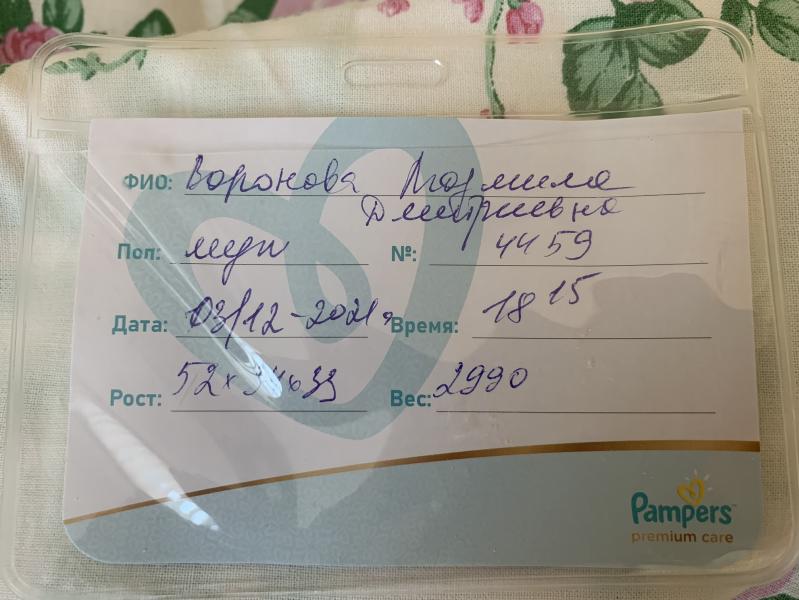 ФИО: Воронова Людмила
Дмитриевна
Пол: муж №: 4459
Дата: 03/12-2021г Время: 18 15
Рост: 52×34×33 Вес: 2990
Pampers
premium care